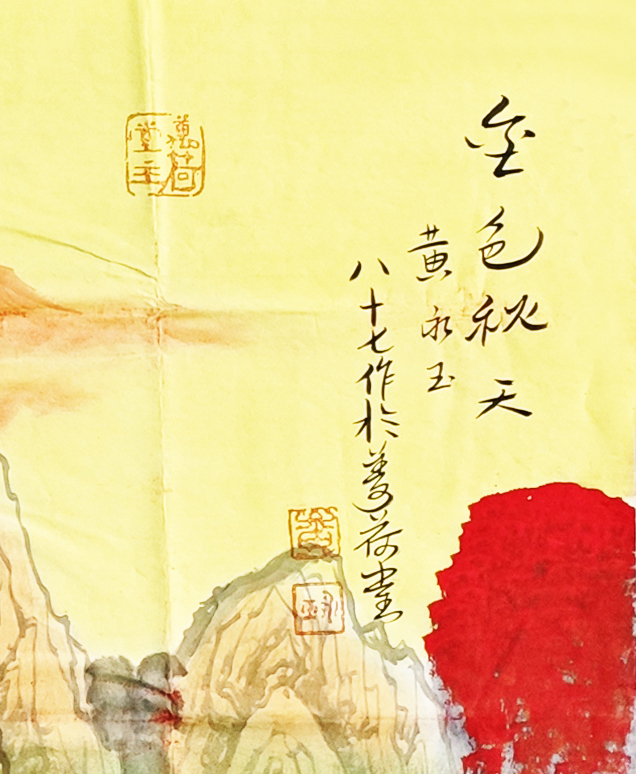 金色秋天
黄永玉
八十七作於萬荷堂
萬荷堂主
黄
永玉